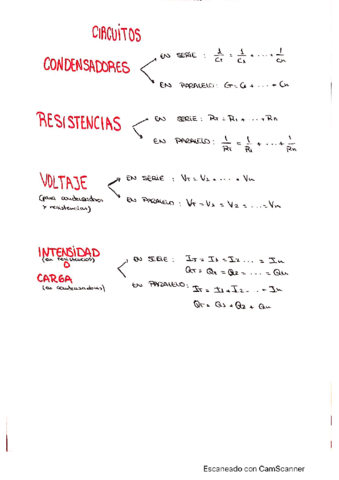 CIRCUITOS
CONDENSADORES
EN SERIE : 1/CT = 1/C1 + ... + 1/Cn
EN PARALELO: CT = C1 + ... + Cn
RESISTENCIAS
EN SERIE: RT = R1 + ... + Rn
EN PARALELO: 1/RT = 1/R1 + ... + 1/Rn
VOLTAJE
(para condensadores
y resistencias)
EN SERIE : VT = V1 + ... + Vn
EN PARALELO: VT = V1 = V2 = ... = Vn
INTENSIDAD
(en resistencias)
O
CARGA
(en condensadores)
EN SERIE: IT = I1 = I2 ... = In
QT = Q1 = Q2 = ... = Qn
EN PARALELO: IT = I1 + I2 ... + In
QT = Q1 + Q2 + Qn
Escaneado con CamScanner